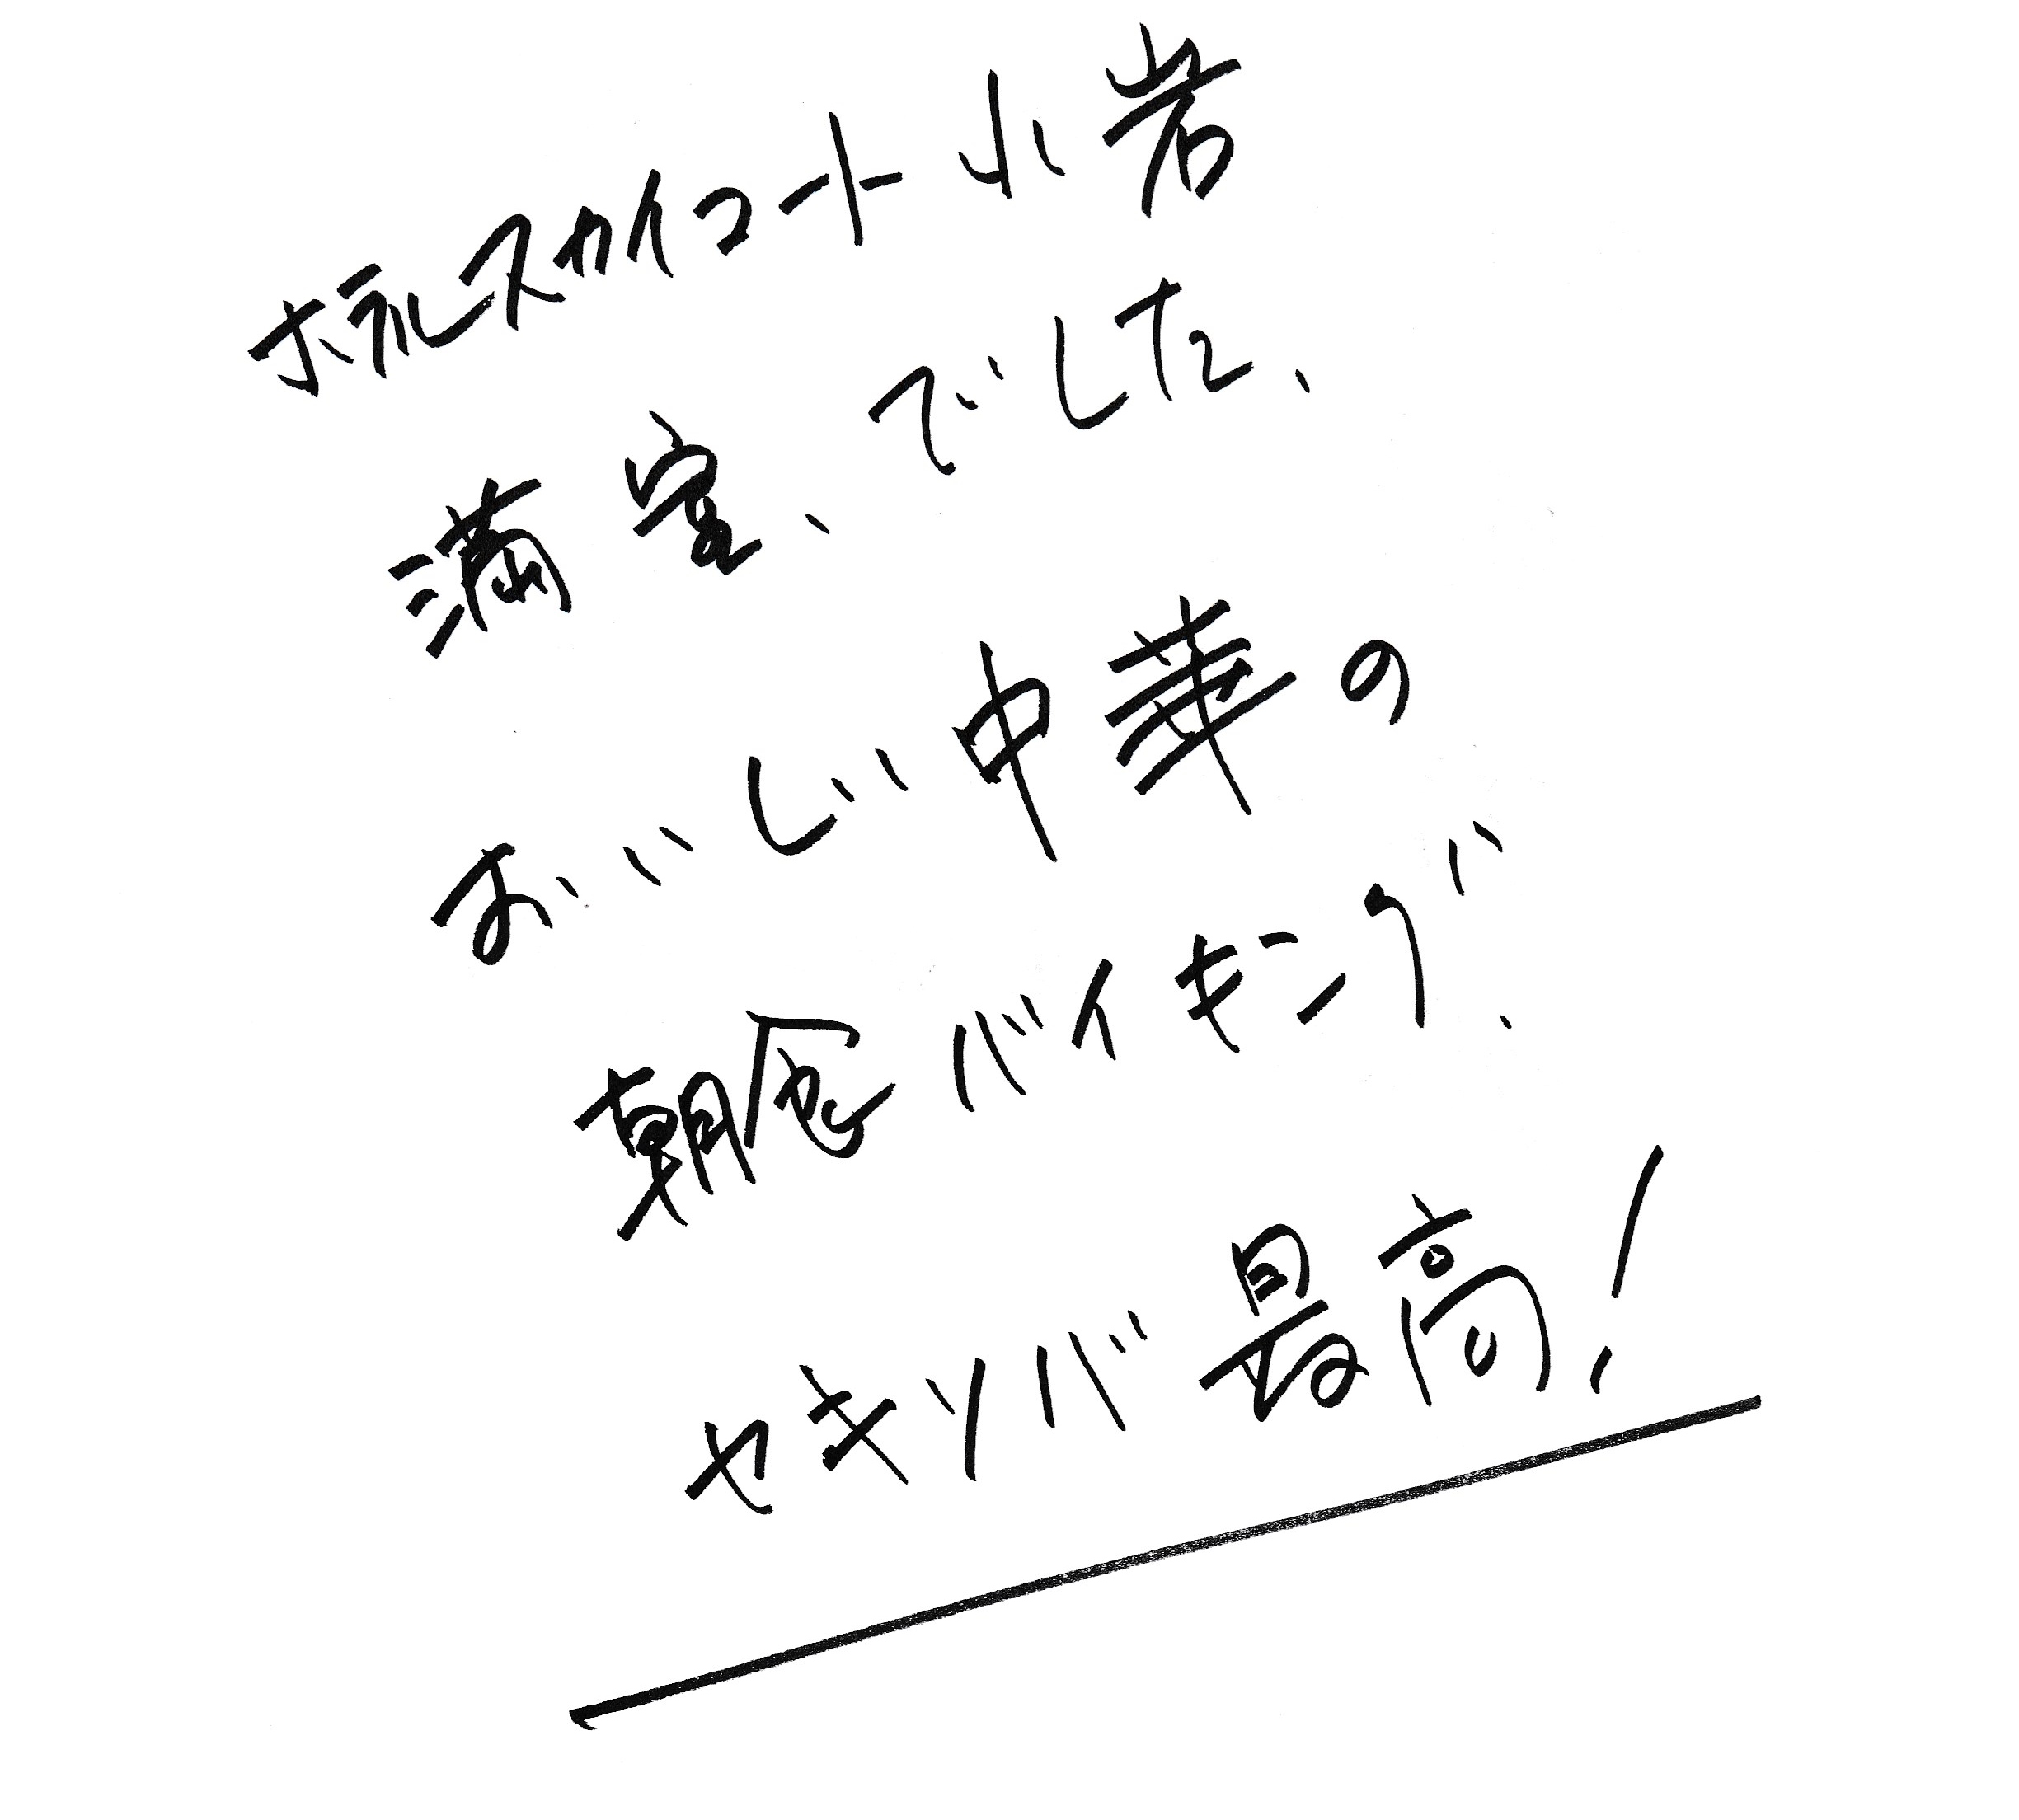 ホテルスカイコート小岩
満室、でした、
おいしい中華の
朝食バイキング、
ヤキソバ最高!